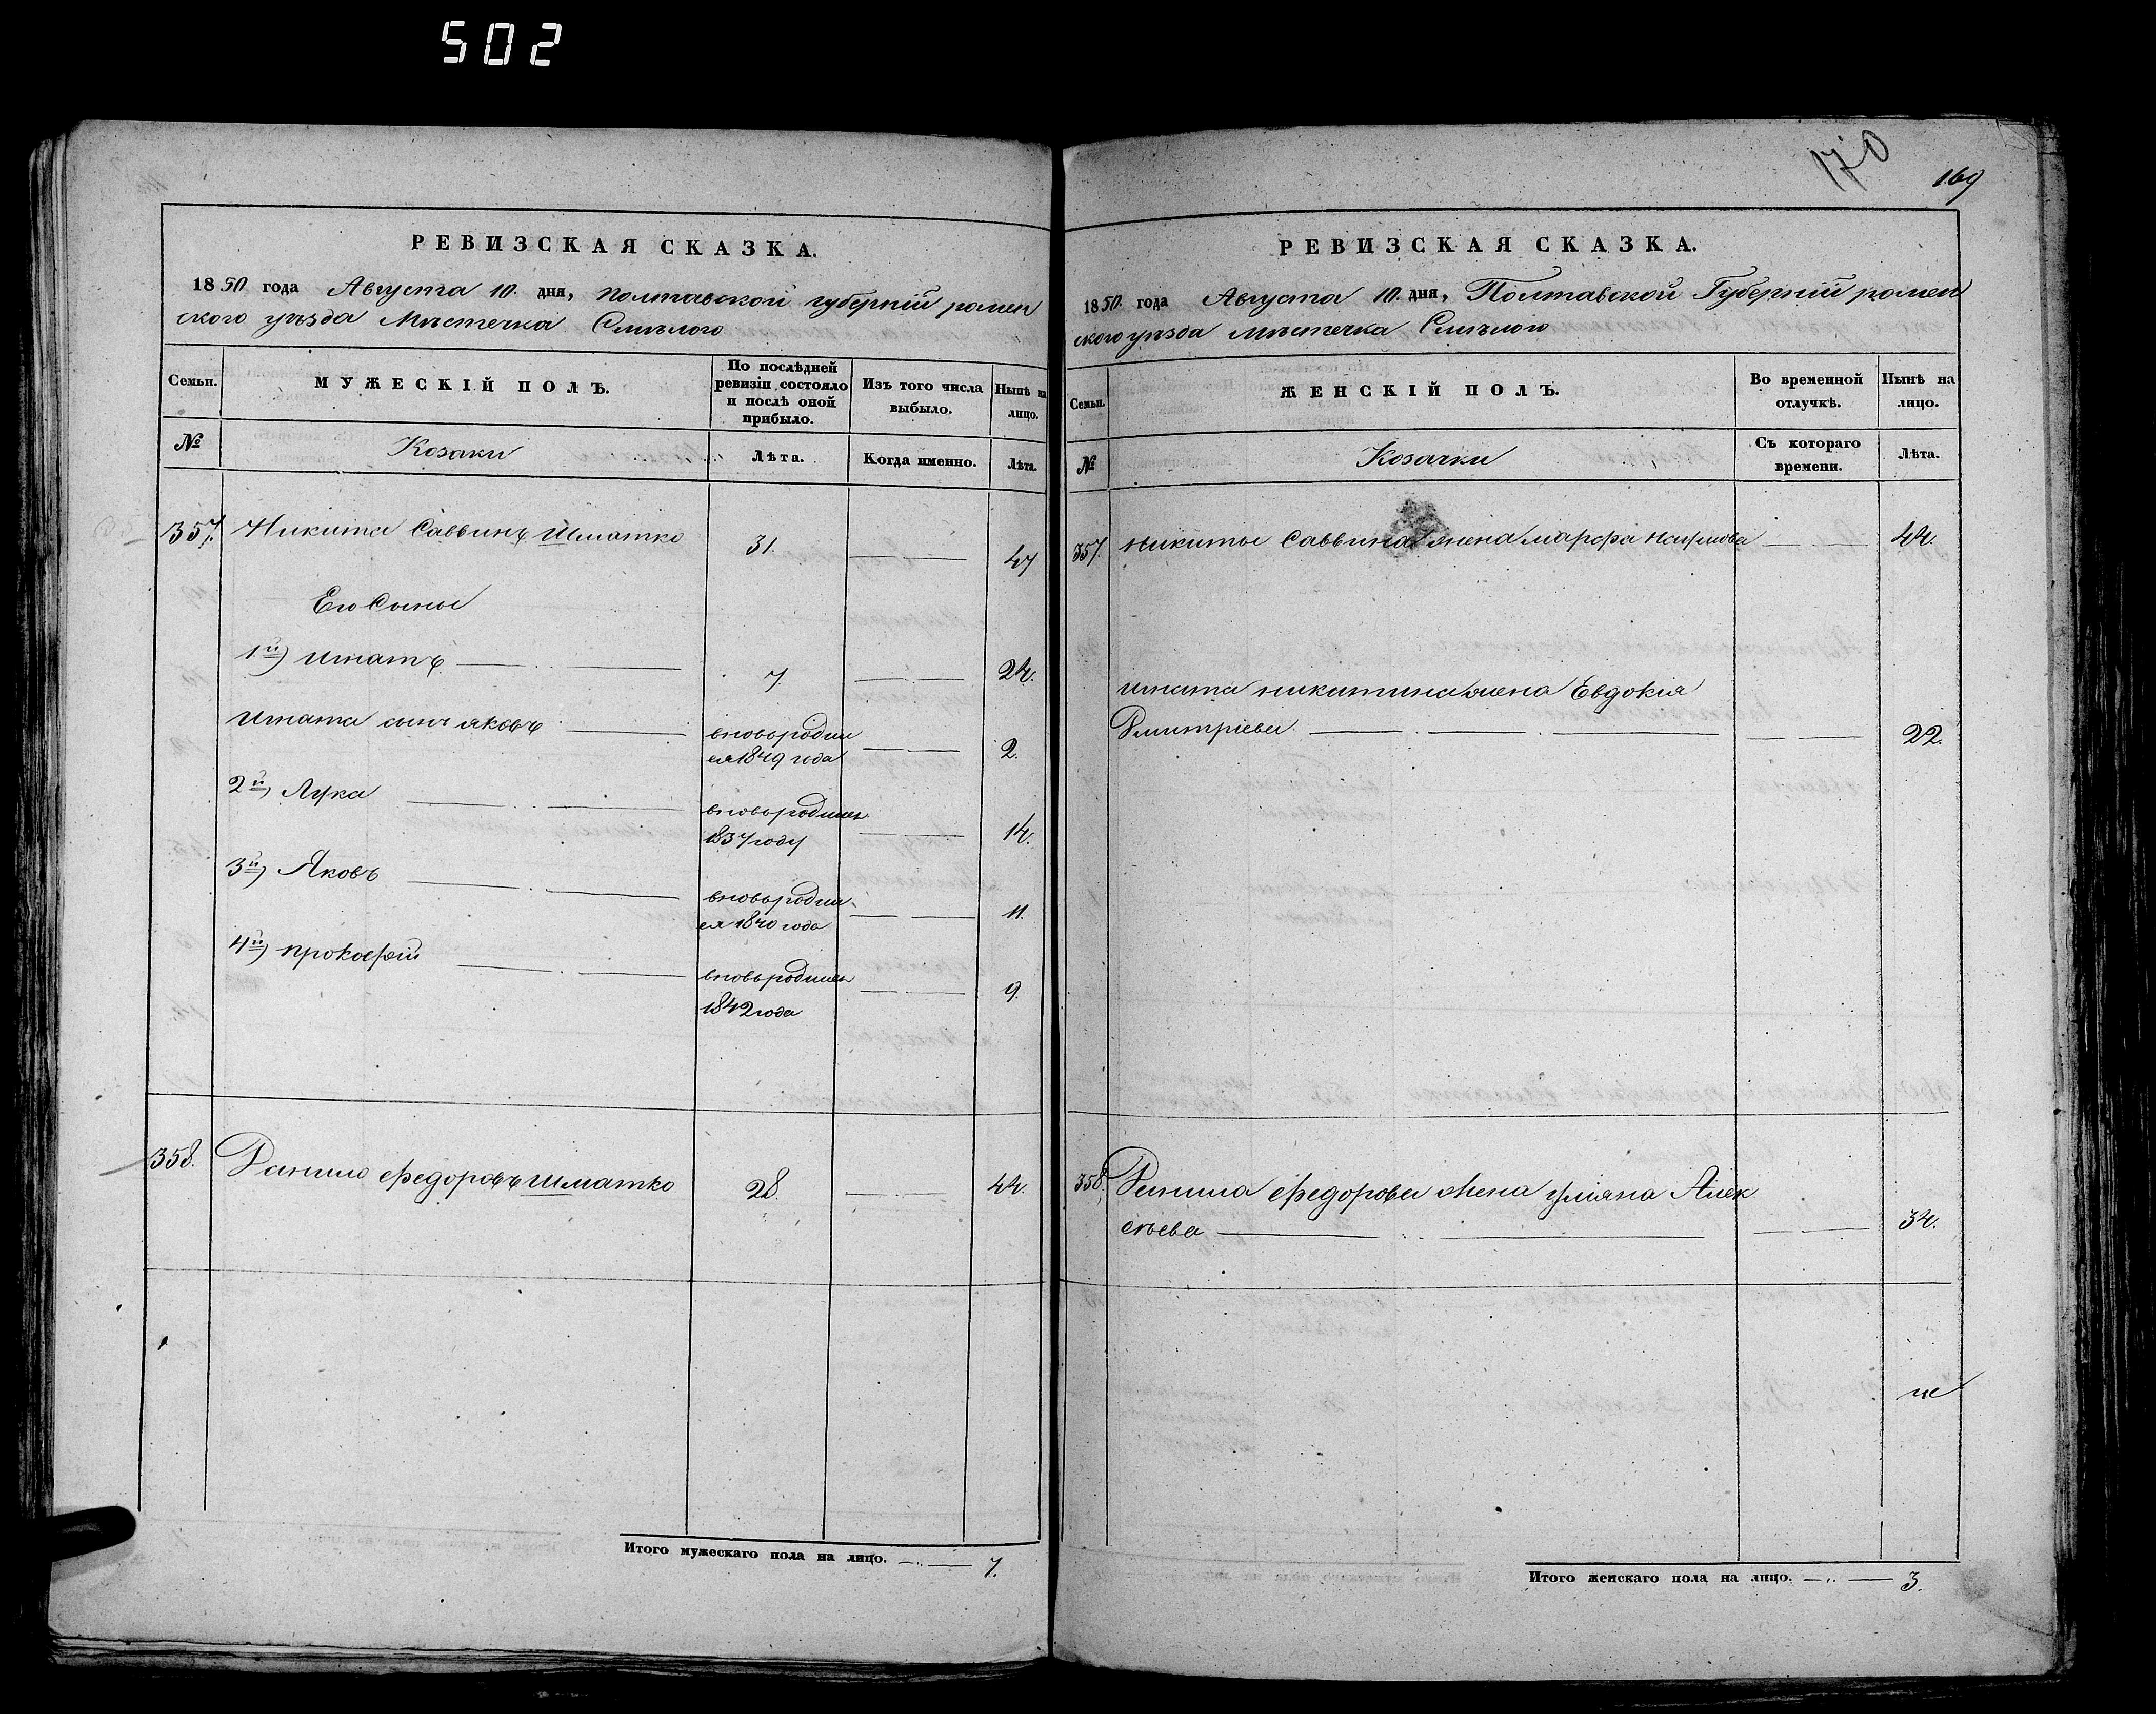 502
РЕВИЗСКАЯ СКАЗКА.
1850 года Августа 10. дня, полтавской губерніи ромен
ского уѣзда Мѣстечка Смѣлого
Семьи.
МУЖЕСКІЙ ПОЛЪ.
По послѣдней ревизіи состояло и послѣ оной прибыло.
Изъ того числа выбыло.
Нынѣ на лицо.
№
Козаки
Лѣта.
Когда именно.
Лѣта.
357. Никита Саввинъ Шматко 31. 47
Его Сыны
1й) Игнатъ 7. 24.
Игната сынъ яковъ вновьродил
ся 1849 года 2.
2й) Лука вновьродился
1837 году 14.
3й) Яковъ вновьродил
ся 1840 года 11.
4й) прокофій вновьродился
1842 года 9.
358. Данило федоровъ Шматко 28. 44.
Итого мужескаго пола на лицо. 7.
170
169
РЕВИЗСКАЯ СКАЗКА.
1850 года Августа 10. дня, Полтавской Губерніи ромен
ского уѣзда мѣстечка Смѣлого
Семьи.
ЖЕНСКІЙ ПОЛЪ.
Во временной отлучкѣ.
Нынѣ на лицо.
№
Козачки
Съ котораго времени.
Лѣта.
357. никиты Саввина жена марфа Наумова 44.
игната никитина жена Евдокія
Дмитріева 22.
358. Данила федорова жена уліяна Алек
сѣева 34.
Итого женскаго пола на лицо. 3.